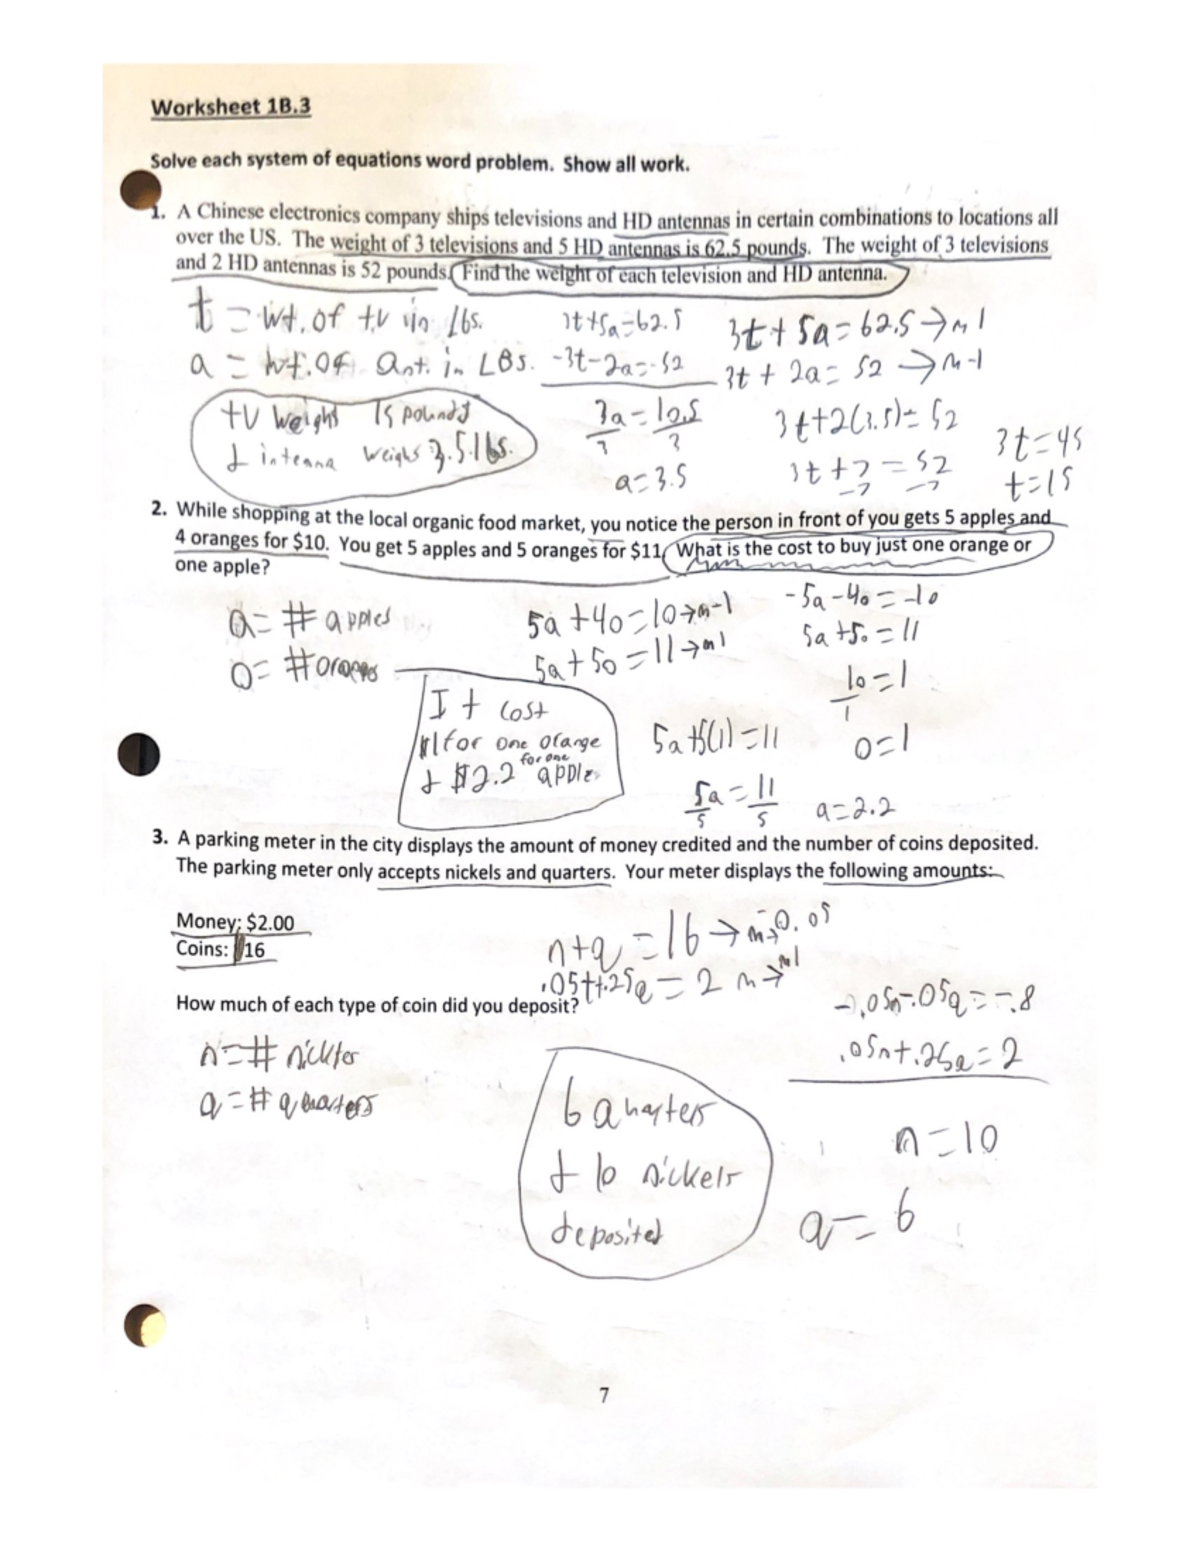 Worksheet 1B.3
Solve each system of equations word problem. Show all work.
1. A Chinese electronics company ships televisions and HD antennas in certain combinations to locations all
over the US. The weight of 3 televisions and 5 HD antennas is 62.5 pounds. The weight of 3 televisions
and 2 HD antennas is 52 pounds. Find the weight of each television and HD antenna.
t = wt. of tv in lbs.
a = wt. of ant. in LBS.
3t+5a=62.5
-3t-2a=-52
3a=10.5
3 3
a=3.5
3t + 5a = 62.5 → m 1
3t + 2a = 52 → m -1
3t+2(3.5)=52
3t+7=52
-7 -7
3t=45
t=15
tv weighs 15 pounds
& intenna weighs 3.5 lbs.
2. While shopping at the local organic food market, you notice the person in front of you gets 5 apples and
4 oranges for $10. You get 5 apples and 5 oranges for $11. What is the cost to buy just one orange or
one apple?
a = # apples
o = # oranges
5a + 4o = 10 → m -1
5a + 5o = 11 → m 1
-5a - 4o = -10
5a + 5o = 11
1o = 1
1
o = 1
5a+5(1)=11
5a = 11
5 5
a = 2.2
It cost
$1 for one orange
& $2.2 for one apple
3. A parking meter in the city displays the amount of money credited and the number of coins deposited.
The parking meter only accepts nickels and quarters. Your meter displays the following amounts:
Money: $2.00
Coins: 16
n+q = 16 → m → -0.05
.05t+.25q = 2 m → m1
How much of each type of coin did you deposit?
n = #
q = # quarters
-.05n-.05q = -.8
.05n+.25q = 2
n = 10
q = 6
6 quarters
& 10 nickels
deposited
7